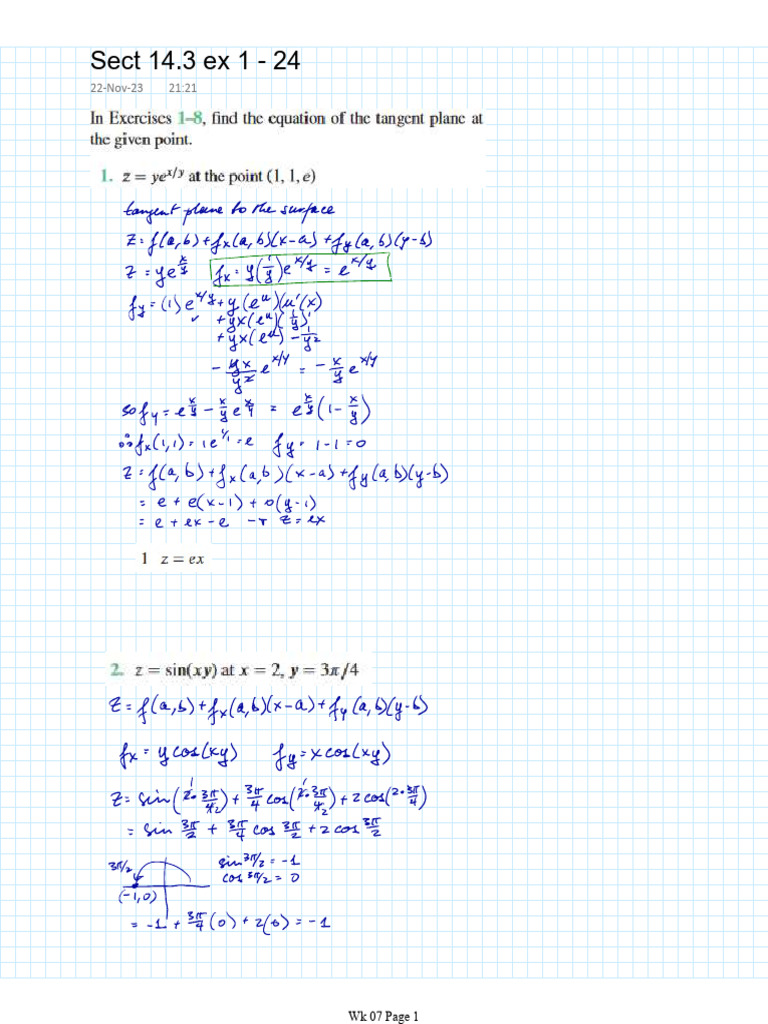 Sect 14.3 ex 1 - 24
22-Nov-23 21:21
In Exercises 1–8, find the equation of the tangent plane at
the given point.
1. z = ye^{x/y} at the point (1, 1, e)
tangent plane to the surface
z = f(a,b) + f_x(a,b)(x-a) + f_y(a,b)(y-b)
z = ye^{x/y} f_x = y(1/y)e^{x/y} = e^{x/y}
f_y = (1)e^{x/y} + y(e^u)(u'(x)
+ yx(e^u)(1/y)'
+ yx(e^u) - 1/y²
- yx/y² e^{x/y} = - x/y e^{x/y}
so f_y = e^{x/y} - x/y e^{x/y} = e^{x/y}(1 - x/y)
∴ f_x(1,1) = 1e^{1/1} = e f_y = 1-1 = 0
z = f(a,b) + f_x(a,b)(x-a) + f_y(a,b)(y-b)
= e + e(x-1) + 0(y-1)
= e + ex - e → z = ex
1 z = ex
2. z = sin(xy) at x = 2, y = 3π/4
z = f(a,b) + f_x(a,b)(x-a) + f_y(a,b)(y-b)
f_x = y cos(xy) f_y = x cos(xy)
z = sin(2·3π/4) + 3π/4 cos(2·3π/4) + 2 cos(2·3π/4)
= sin 3π/2 + 3π/4 cos 3π/2 + 2 cos 3π/2
3π/2 sin 3π/2 = -1
(-1,0) cos 3π/2 = 0
= -1 + 3π/4 (0) + 2(0) = -1
Wk 07 Page 1